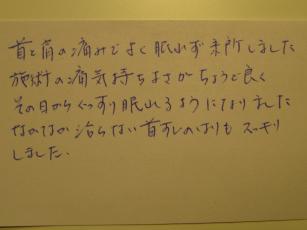 首と肩の痛みでよく眠れず来所しました
施術の痛気持ちよさがちょうど良く
その日からぐっすり眠れるようになりました
なかなか治らない首すじのはりもスッキリ
しました.